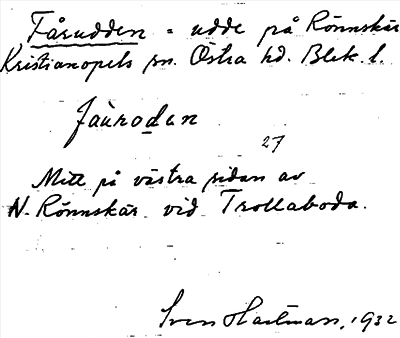 Fårudden = udde på Rönnskär
Kristianopels sn. Östra hd. Blek. l.
27
Mitt på västra sidan av
N. Rönnskär vid Trollaboda.
Sven Hartman, 1932